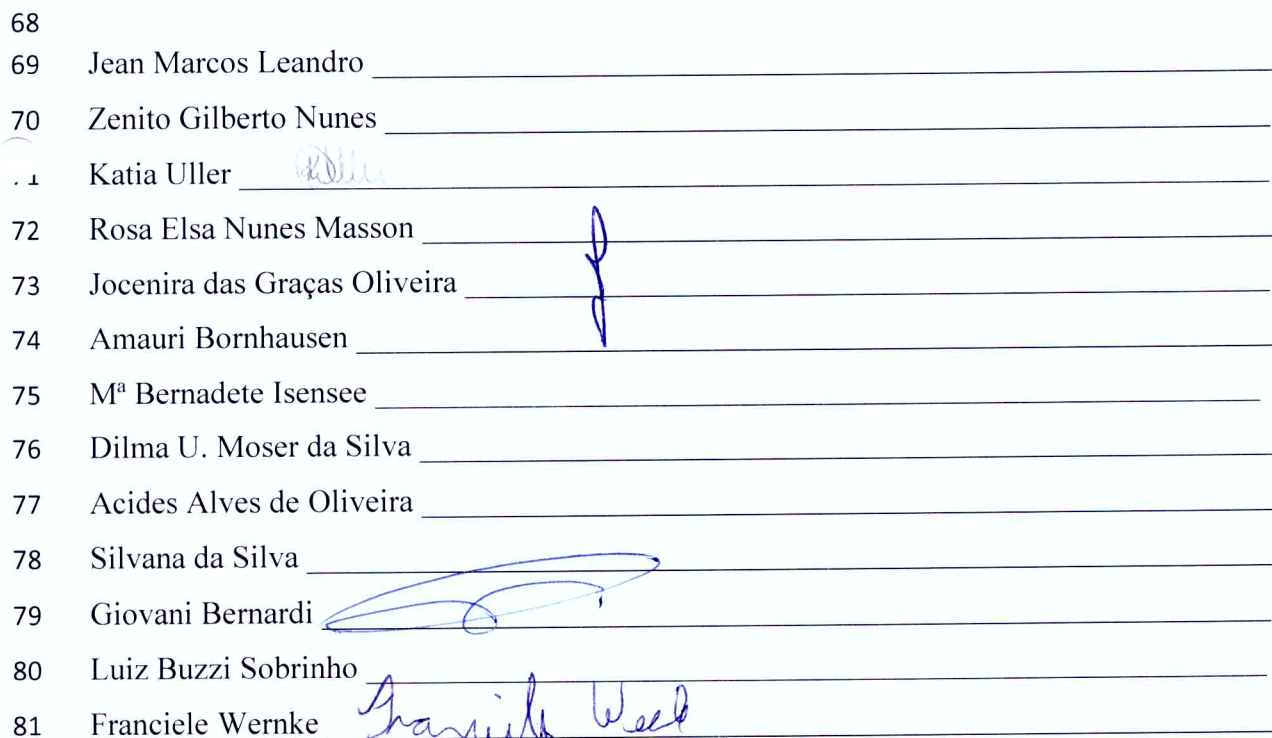 68
69 Jean Marcos Leandro
70 Zenito Gilberto Nunes
Katia Uller
72 Rosa Elsa Nunes Masson
73 Jocenira das Graças Oliveira
74 Amauri Bornhausen
75 Mª Bernadete Isensee
76 Dilma U. Moser da Silva
77 Acides Alves de Oliveira
78 Silvana da Silva
79 Giovani Bernardi
80 Luiz Buzzi Sobrinho
81 Franciele Wernke